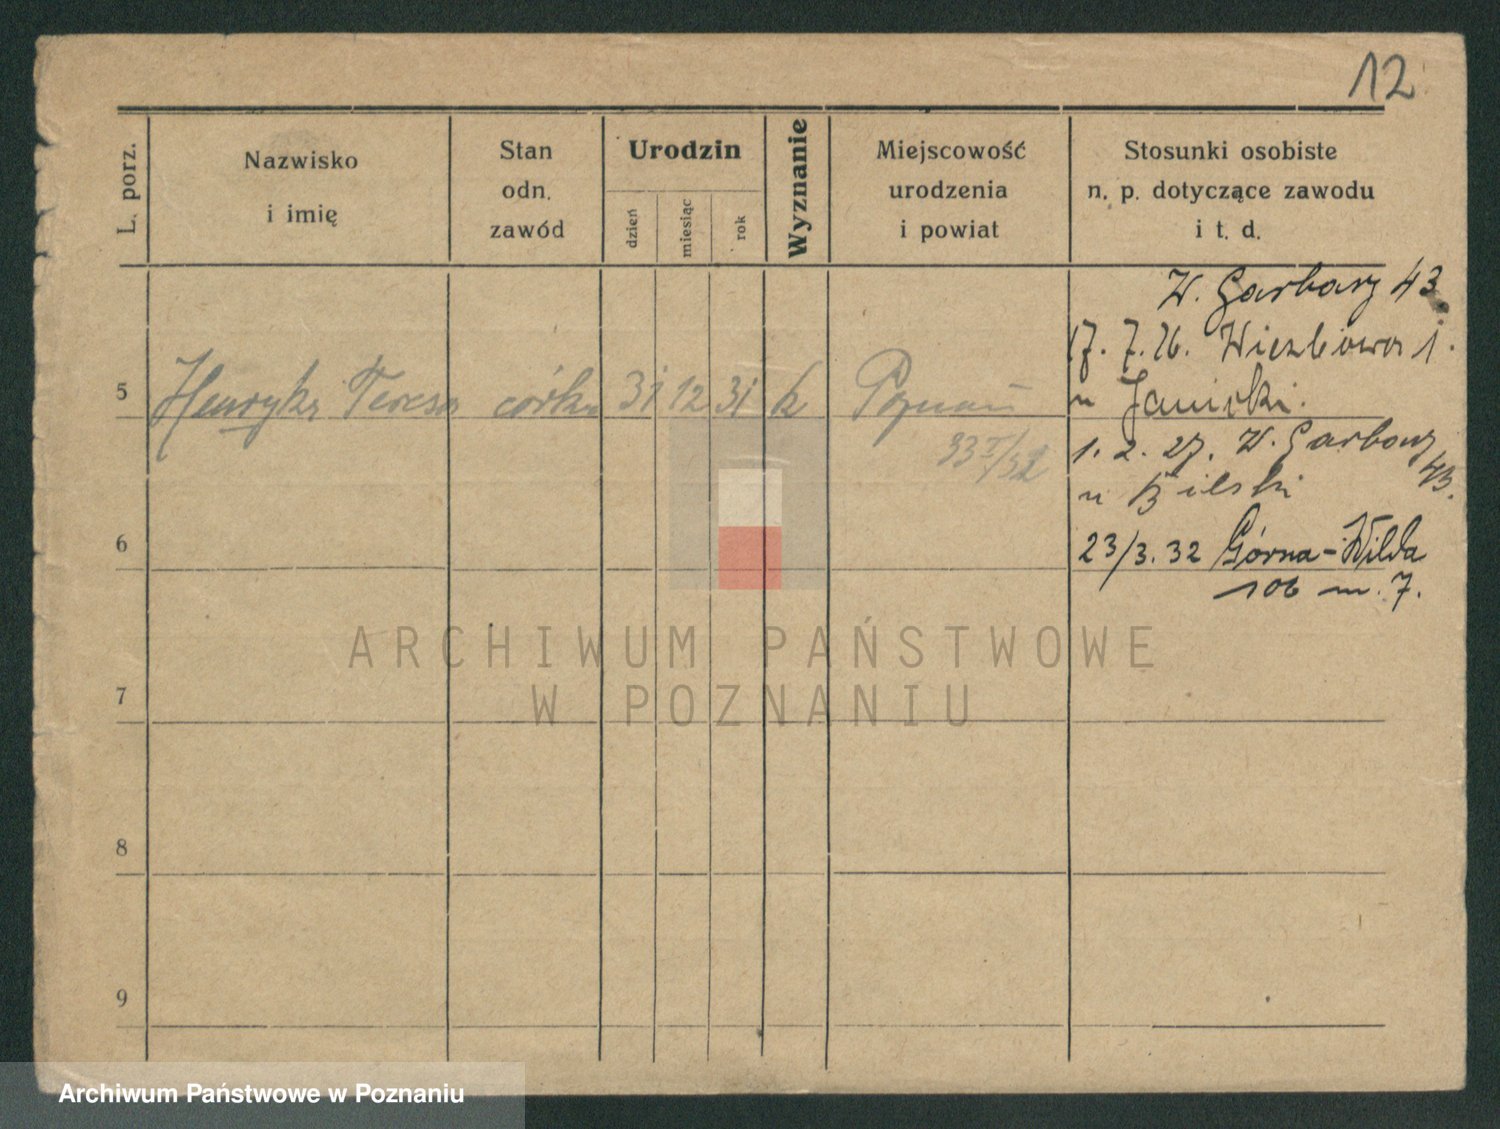 12
L. porz.
Nazwisko
i imię
Stan
odn.
zawód
Urodzin
dzień
miesiąc
rok
Wyznanie
Miejscowość
urodzenia
i powiat
Stosunki osobiste
n. p. dotyczące zawodu
i t. d.
W. Garbary 43
17. 7. 26. Wierzbowa 1.
5 Henryka Teresa córka 31 12 31 k Poznań
u Janicki.
33 I/32
1. 2. 27. W. Garbary
43.
u Bielski
6
23/3. 32 Górna-Wilda
106 m. 7.
ARCHIWUM PAŃSTWOWE
W POZNANIU
7
8
9
Archiwum Państwowe w Poznaniu